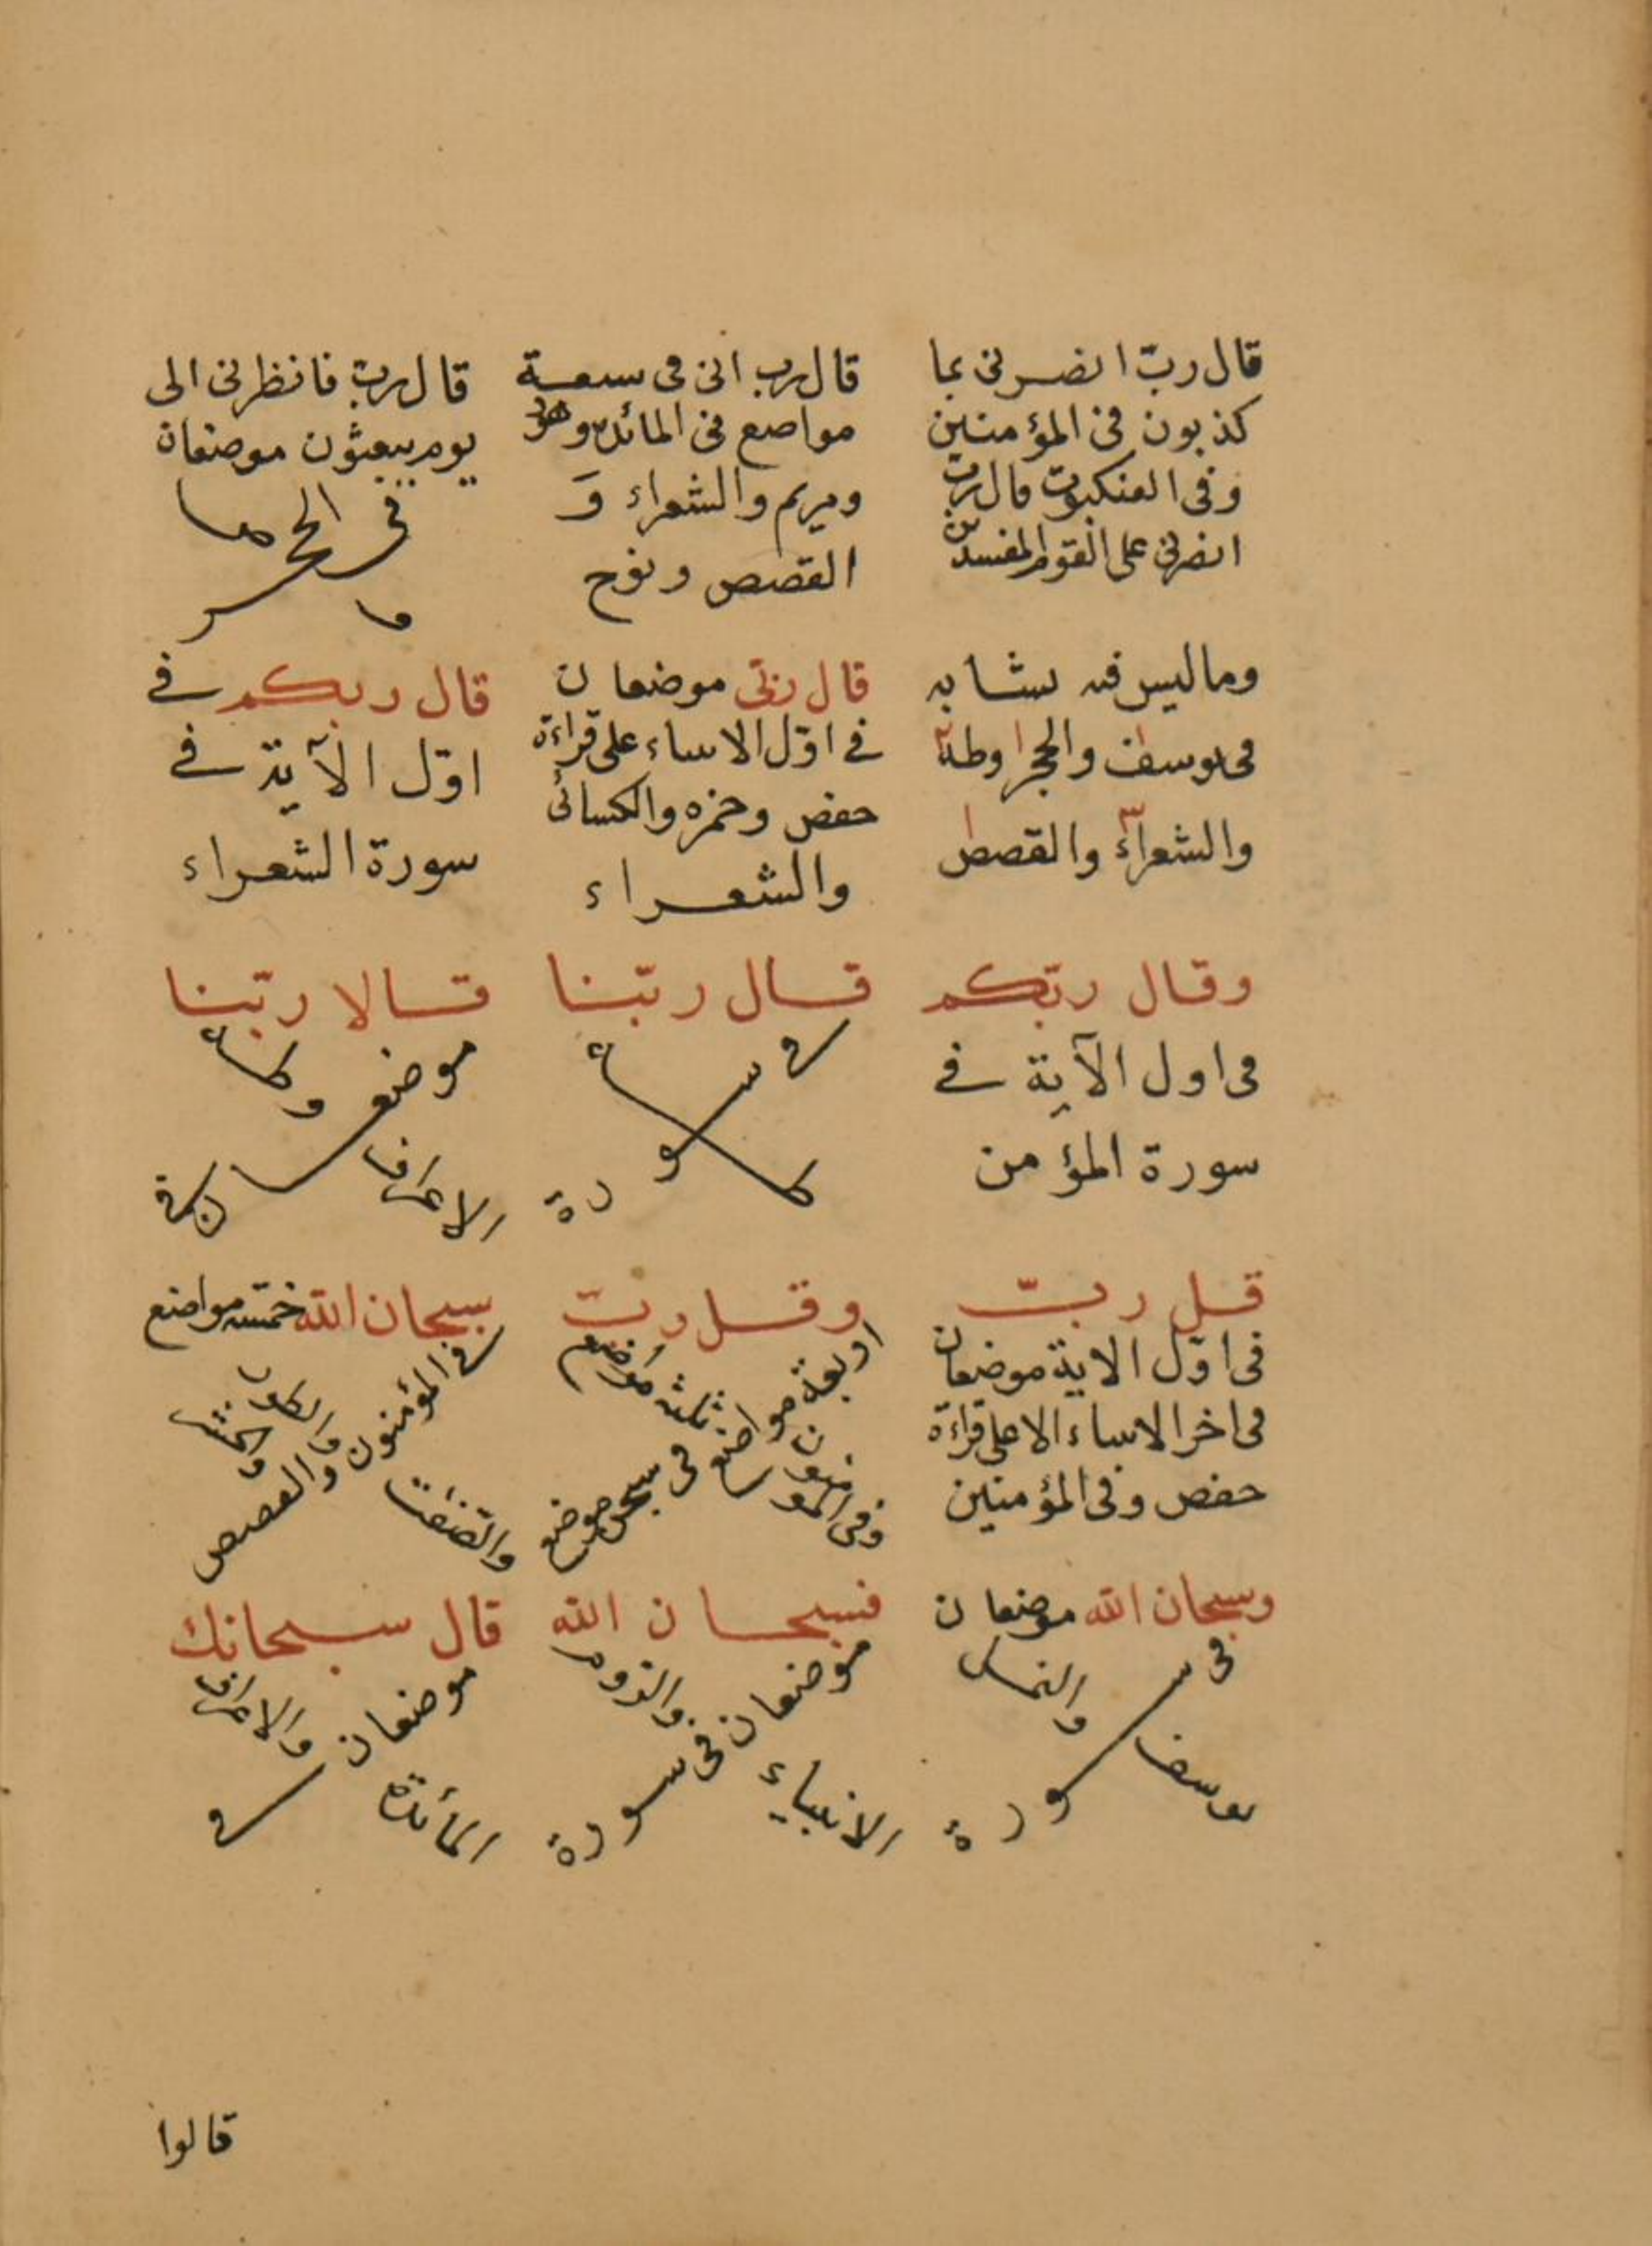 قال ربّ انصرنى بما
كذبون فى المؤمنين
وفى العنكبوت قال رب
انصرنى على القوم المفسدين
قال رب انى فى سبعة
مواضع فى المائدة وهود
ومريم والشعراء و
القصص ونوح
قال رب فانظرنى الى
يوم يبعثون موضعان
فى الحجر
وص
وما ليس فيه تشابه
فى يوسف والحجر وطه
والشعراء والقصص
قال ربّى موضعان
فى اوّل الانبياء على قراءة
حفص وحمزه والكسائى
والشعراء
قال ربكم فى
اوّل الآية فى
سورة الشعراء
وقال ربّكم
فى اول الآية فى
سورة المؤمن
قال ربّنا
فى سورة
طه
قالا ربّنا
موضعان فى
الاعراف
وطه
قل ربّ
فى اوّل الاية موضعان
فى اخر الانبياء الا على قراءة
حفص وفى المؤمنين
وقل ربّ
اربعة مواضع
ثلثة مواضع
فى سبحن موضع
وفى المؤمنون
سبحان الله خمسة مواضع
فى المؤمنون والقصص
والطور والحشر
والصّفت
وسبحان الله موضعان
فى سورة
يوسف
والنمل
فسبحان الله
موضعان فى سورة
الانبياء
والروم
قال سبحانك
موضعان فى
المائدة
والاعراف
قالوا